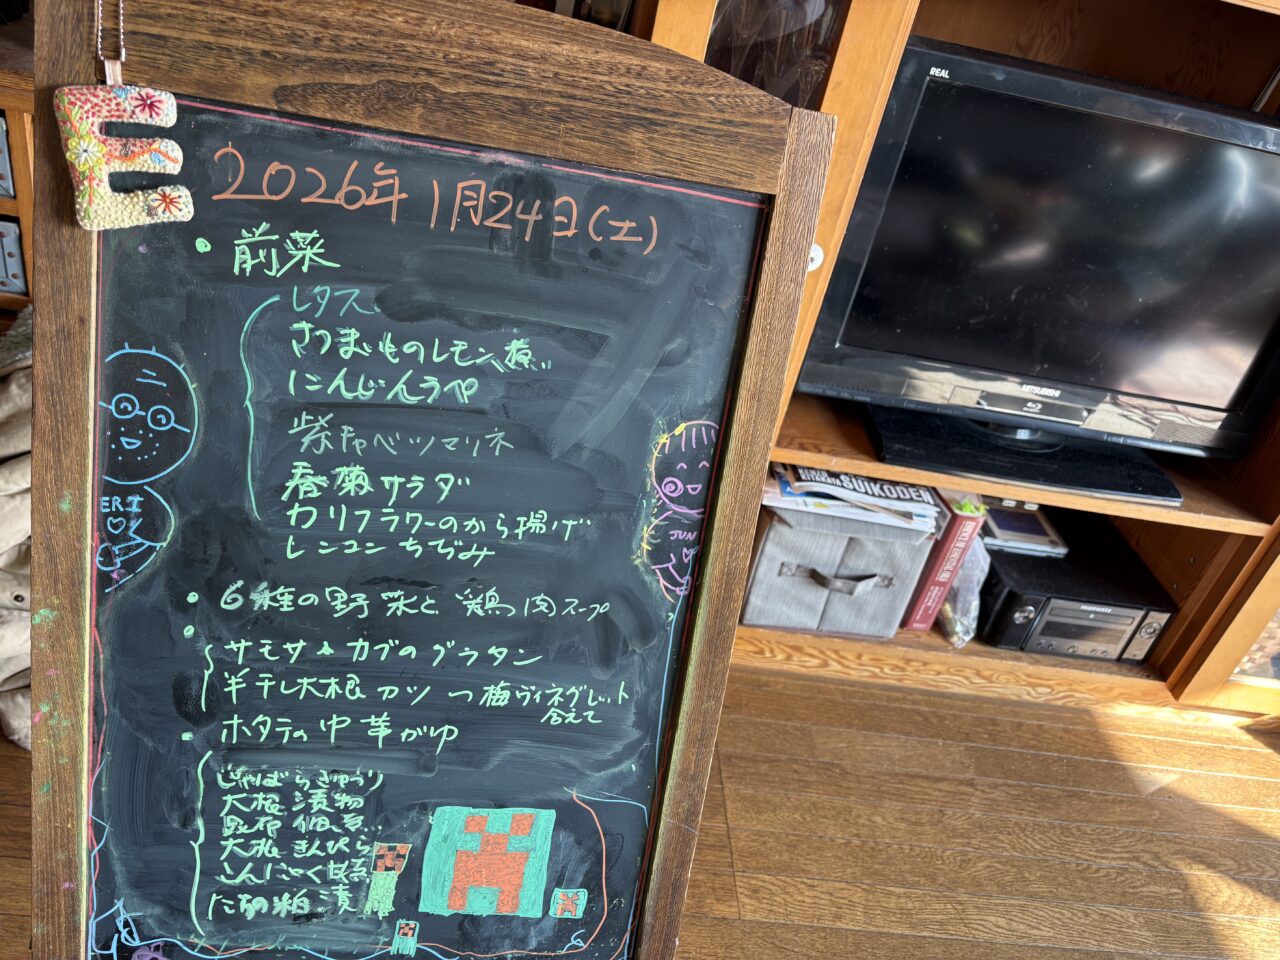 E
2026年1月24日(土)
・前菜
レタス
さつまいものレモン煮
にんじんラペ
紫キャベツマリネ
春菊サラダ
カリフラワーのから揚げ
レンコンちぢみ
・6種の野菜と鶏肉スープ
・
サモサ&カブのグラタン
半干し大根カツ 梅ヴィネグレット
合えて
・ホタテの中華がゆ
じゃばらきゅうり
大根漬物
昆布佃煮
大根きんぴら
こんにゃく甘煮
たらの粕漬
ERI
JUN
REAL
MITSUBISHI
SUIKODEN
marantz